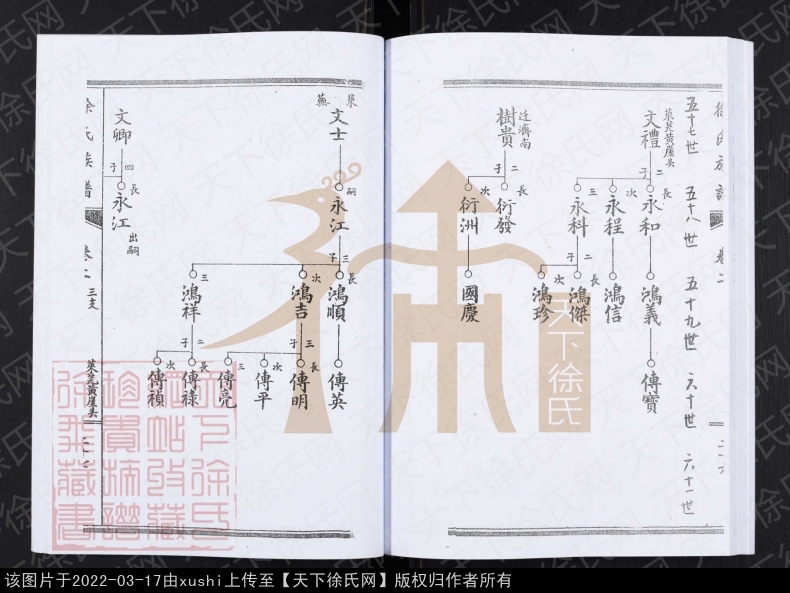 徐氏族譜
卷二
五十七世
五十八世
五十九世
六十世
六十一世
萊芜黄崖头
文禮
二子
長
永和
鴻義
傳寶
次
永程
鴻信
三
永科
二子
長
鴻傑
次
鴻珍
迁濟南
樹貴
二子
長
衍發
次
衍洲
國慶
萊蕪
文士
嗣
永江
三子
長
鴻順
傳英
次
鴻吉
三子
長
傳明
次
傳平
三
傳亮
三
鴻祥
二子
長
傳祿
次
傳禎
文卿
四子
長
永江
出嗣
徐氏族譜
卷二
三支
萊芜黄崖头
天下徐氏
天下徐氏网
该图片于2022-03-17由xushi上传至【天下徐氏网】版权归作者所有